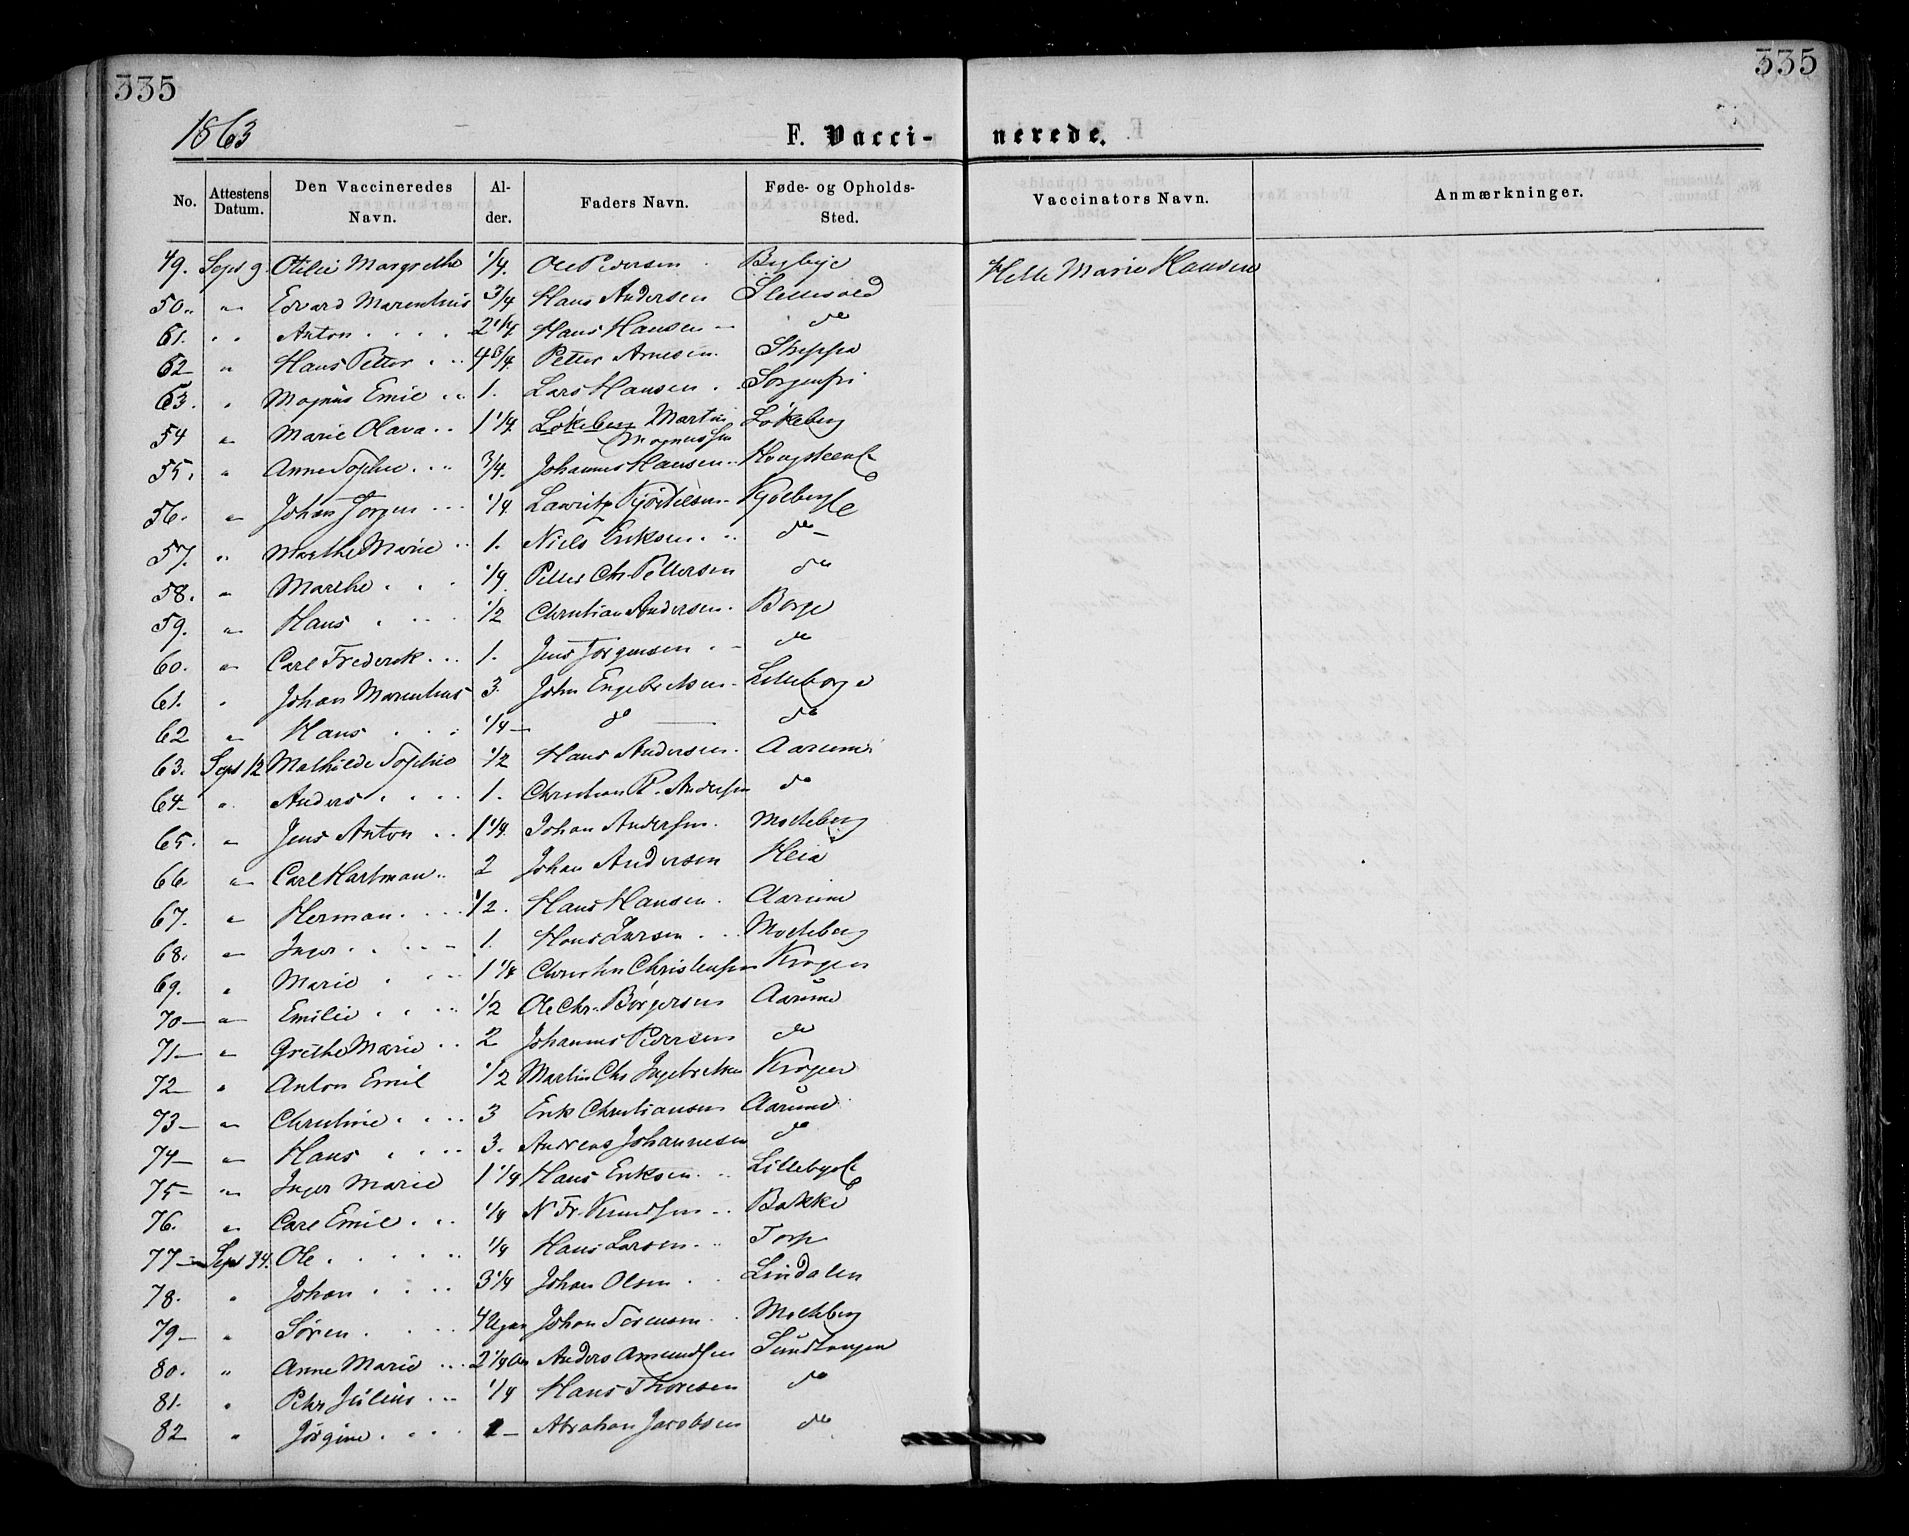 335 335
1863
F. Vacci- nerede.
No. Attestens Datum. Den Vaccineredes Navn. Al- der. Faders Navn. Føde- og Opholds- Sted. Vaccinators Navn. Anmærkninger.
49. Sept 9. Otilie Margrethe 1/4. Ole Pedersen Bybye Helle Marie Hansen
50. " Edvard Marenthius 3/4 Hans Andersen Slettevold
61. " Anton 2 1/4. Hans Hansen do
62 " Hans Petter 4 3/4 Petter Arnesen Skippa
63. " Magnus Emil 1. Lars Hansen Sorgenfri
54 " Marie Olava 1 1/4. Lökeberg Martin Magnussen Lökeberg
55. " Anne Sophie 3/4. Johannes Hansen
56. " Johan Jörgen 1/4 Lauritz Kjölberg
57. " Marthe Marie 1. Niels Eriksen do
58. " Marthe 1/4. Petter Chr Pettersen do
59. " Hans 1/2 Christian Andersen Borge
60. " Carl Frederik 1. Jens Jörgensen do
61. " Johan Marenthius 3. John Engebretsen Lilleborge
62 " Hans 1/4 do do
63. Sept 12 Mathilde Sophie 1/2 Hans Andersen Aarum
64 " Anders 1. Christian P. Andersen do
65. " Jens Anton 1 1/4. Johan Andersen Mockeberg
66. " Carl Hartman 2 Johan Andersen Heia
67. " Herman 1/2. Hans Hansen Aarum
68. " Inger 1. Hans Larsen Mockeberg
69. " Marie 1 1/4 Christen Christensen Krogen
70 " Emilie 1/2 Ole Chr. Börgersen Aarum
71 " Grethe Marie 2 Johannes Pedersen do
72 " Anton Emil 1/2 Martin Chr Ingebretsen Krogen
73 " Christine 3 Erik Christiansen Aarum
74 " Hans 3. Andreas Johannesen do
75 " Inger Marie 1 1/4 Hans Eriksen
76. " Carl Emil 1/4 N Fr. Knudsen Bakke
77 Sept 14. Ole 1/4 Hans Larsen Torp
78. " Johan 3 1/4 Johan Olsen Lindalen
79 " Sören 4 Uger Johan Sörensen Mockeberg
80. " Anne Marie 2 1/4 Aar Anders Amundsen Sundlangen
81. " Petr Julius 1/4 Hans Thoresen do
82 " Jörgine 1 Abraham Jacobsen do